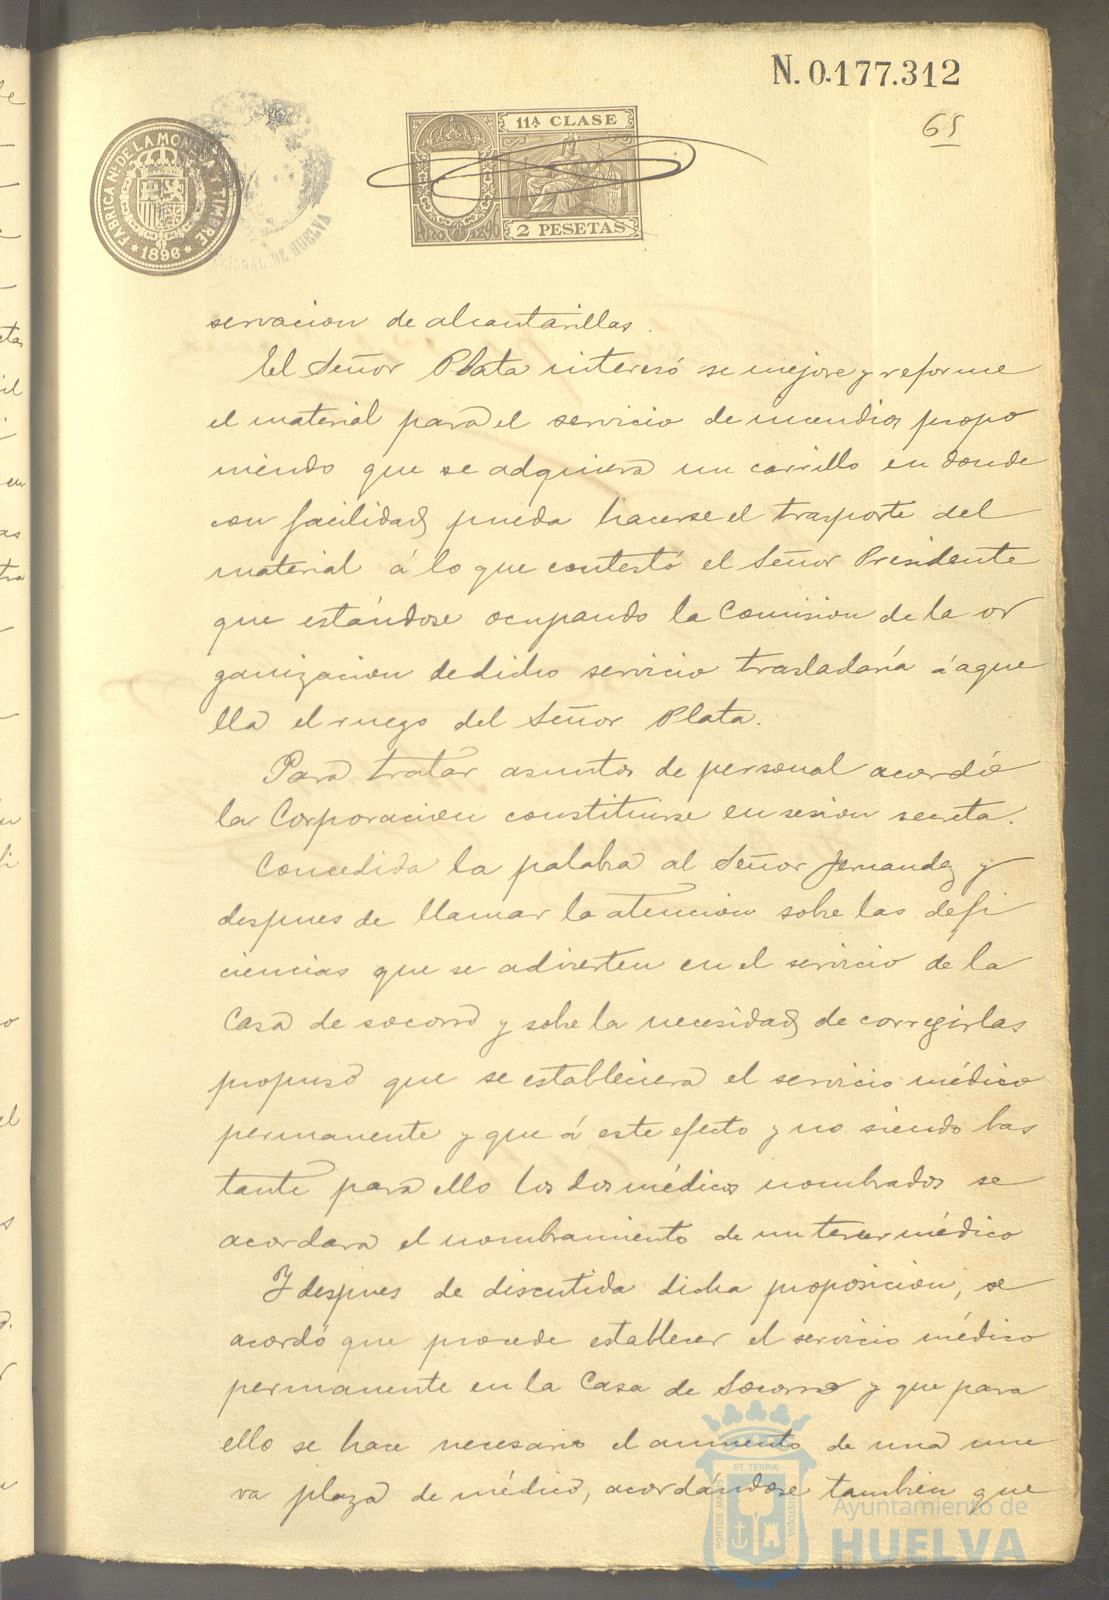 N. 0.177.312
65
FABRICA NL. DE LA MONEDA Y TIMBRE
* 1896 *
DE HUELVA
11ª CLASE
2 PESETAS
servacion de alcantarillas.
El Señor Plata interesó se mejore y reforme
el material para el servicio de incendios propo
niendo que se adquiera un carrillo en donde
con facilidad pueda hacerse el trasporte del
material á lo que contestó el Señor Presidente
que estándose ocupando la Comision de la or
ganizacion de dicho servicio trasladaría á aque
lla el ruego del Señor Plata.
Para tratar asuntos de personal acordó
la Corporacion constituirse en sesion secreta.
Concedida la palabra al Señor Fernandez y
despues de llamar la atencion sobre las defi
ciencias que se advierten en el servicio de la
Casa de socorro y sobre la necesidad de corregirlas
propuso que se estableciera el servicio médico
permanente y que á este efecto y no siendo bas
tante para ello los dos médicos nombrados se
acordara el nombramiento de un tercer médico
Y despues de discutida dicha proposicion, se
acordó que procede establecer el servicio médico
permanente en la Casa de Socorro y que para
ello se hace necesario el aumento de una nue
va plaza de médico, acordándose tambien que
PORTUS MARIS
ET TERRÆ
CUSTODIA
Ayuntamiento de
HUELVA